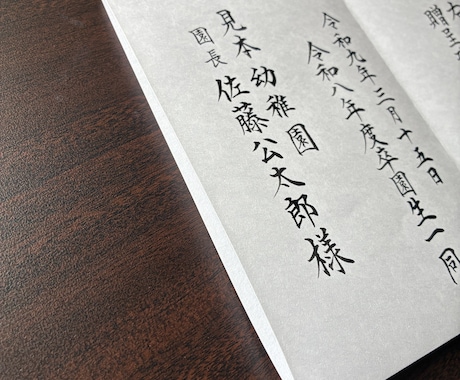 贈呈
令和九年三月十五日
令和八年度卒園生一同
見本幼稚園
園長 佐藤公太郎様